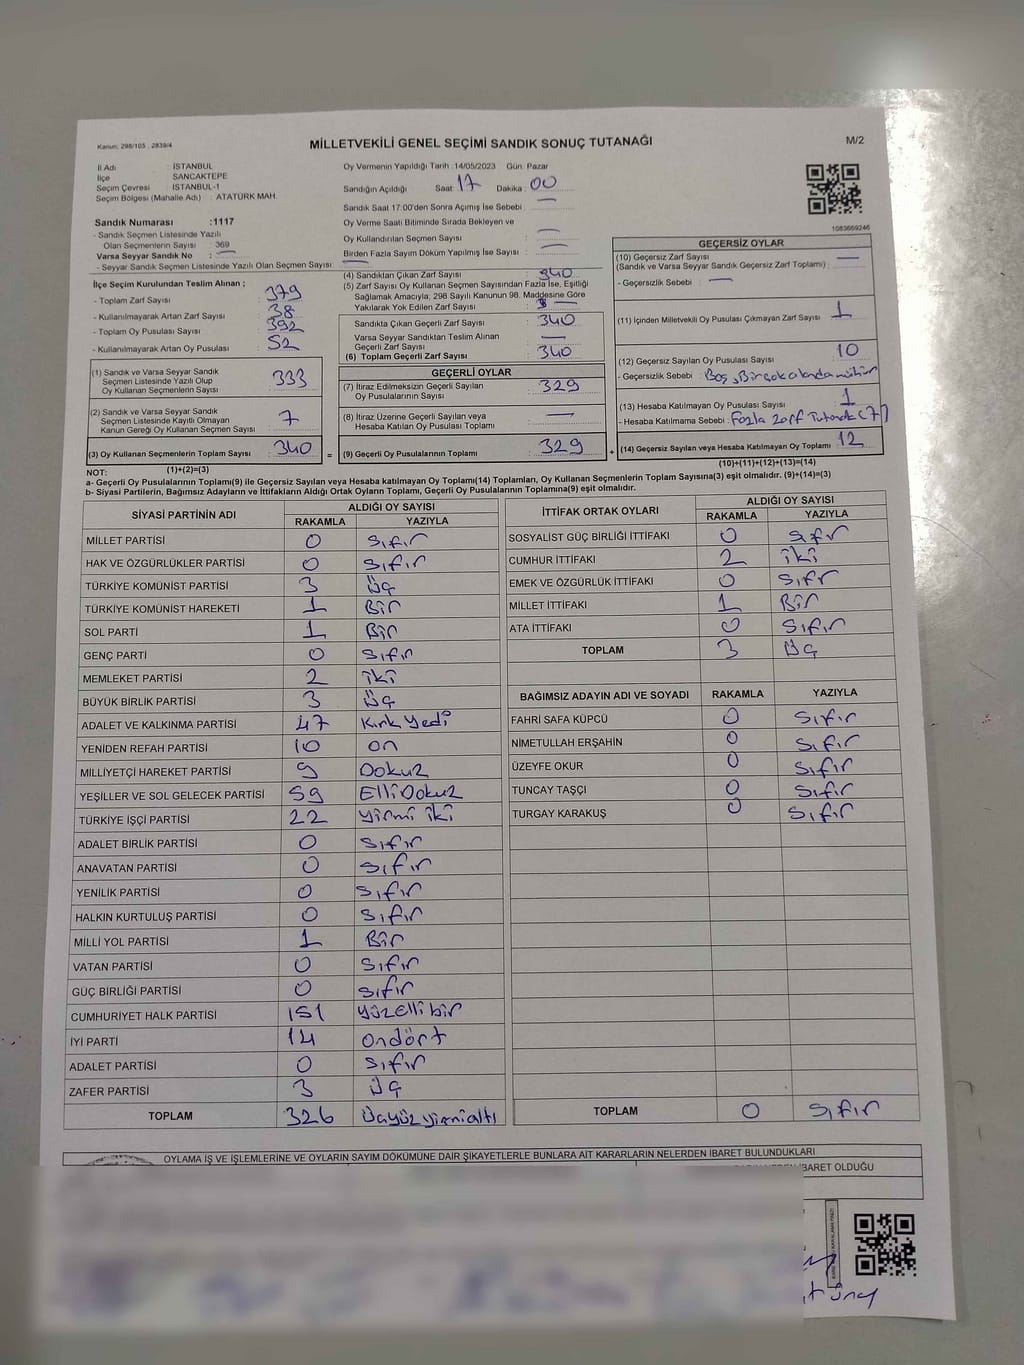 Kanun: 298/105 , 2839/4
MİLLETVEKİLİ GENEL SEÇİMİ SANDIK SONUÇ TUTANAĞI
M/2
İl Adı : İSTANBUL
İlçe : SANCAKTEPE
Seçim Çevresi : İSTANBUL-1
Seçim Bölgesi (Mahalle Adı) : ATATÜRK MAH.
Oy Vermenin Yapıldığı Tarih :14/05/2023 Gün :Pazar
Sandığın Açıldığı Saat : 17 Dakika : 00
Sandık Saat 17:00'den Sonra Açımış İse Sebebi : —
Oy Verme Saati Bitiminde Sırada Bekleyen ve
Oy Kullandırılan Seçmen Sayısı : —
Birden Fazla Sayım Döküm Yapılmış İse Sayısı : —
1083669246
Sandık Numarası :1117
- Sandık Seçmen Listesinde Yazılı
Olan Seçmenlerin Sayısı : 369
Varsa Seyyar Sandık No : —
- Seyyar Sandık Seçmen Listesinde Yazılı Olan Seçmen Sayısı: —
İlçe Seçim Kurulundan Teslim Alınan ;
- Toplam Zarf Sayısı : 379
- Kullanılmayarak Artan Zarf Sayısı : 38
- Toplam Oy Pusulası Sayısı : 392
- Kullanılmayarak Artan Oy Pusulası : 52
(1) Sandık ve Varsa Seyyar Sandık
Seçmen Listesinde Yazılı Olup
Oy Kullanan Seçmenlerin Sayısı : 333
(2) Sandık ve Varsa Seyyar Sandık
Seçmen Listesinde Kayıtlı Olmayan
Kanun Gereği Oy Kullanan Seçmen Sayısı : 7
(3) Oy Kullanan Seçmenlerin Toplam Sayısı : 340
(4) Sandıktan Çıkan Zarf Sayısı : 340
(5) Zarf Sayısı Oy Kullanan Seçmen Sayısından Fazla İse, Eşitliği
Sağlamak Amacıyla; 298 Sayılı Kanunun 98. Maddesine Göre
Yakılarak Yok Edilen Zarf Sayısı : —
Sandıkta Çıkan Geçerli Zarf Sayısı : 340
Varsa Seyyar Sandıktan Teslim Alınan
Geçerli Zarf Sayısı : —
(6) Toplam Geçerli Zarf Sayısı : 340
GEÇERLİ OYLAR
(7) İtiraz Edilmeksizin Geçerli Sayılan
Oy Pusulalarının Sayısı : 329
(8) İtiraz Üzerine Geçerli Sayılan veya
Hesaba Katılan Oy Pusulası Toplamı : —
= (9) Geçerli Oy Pusulalarının Toplamı : 329 +
GEÇERSİZ OYLAR
(10) Geçersiz Zarf Sayısı
(Sandık ve Varsa Seyyar Sandık Geçersiz Zarf Toplamı) : —
- Geçersizlik Sebebi : —
(11) İçinden Milletvekili Oy Pusulası Çıkmayan Zarf Sayısı : 1
(12) Geçersiz Sayılan Oy Pusulası Sayısı : 10
- Geçersizlik Sebebi : Boş, Birçok alanda mühür
(13) Hesaba Katılmayan Oy Pusulası Sayısı : 1
- Hesaba Katılmama Sebebi : Fazla zarf Tutanak (7)
(14) Geçersiz Sayılan veya Hesaba Katılmayan Oy Toplamı : 12
NOT: (1)+(2)=(3)
(10)+(11)+(12)+(13)=(14)
a- Geçerli Oy Pusulalarının Toplamı(9) ile Geçersiz Sayılan veya Hesaba katılmayan Oy Toplamı(14) Toplamları, Oy Kullanan Seçmenlerin Toplam Sayısına(3) eşit olmalıdır. (9)+(14)=(3)
b- Siyasi Partilerin, Bağımsız Adayların ve İttifakların Aldığı Ortak Oyların Toplamı, Geçerli Oy Pusulalarının Toplamına(9) eşit olmalıdır.
SİYASİ PARTİNİN ADI
ALDIĞI OY SAYISI
RAKAMLA YAZIYLA
MİLLET PARTİSİ 0 Sıfır
HAK VE ÖZGÜRLÜKLER PARTİSİ 0 Sıfır
TÜRKİYE KOMÜNİST PARTİSİ 3 Üç
TÜRKİYE KOMÜNİST HAREKETİ 1 Bir
SOL PARTİ 1 Bir
GENÇ PARTİ 0 Sıfır
MEMLEKET PARTİSİ 2 iki
BÜYÜK BİRLİK PARTİSİ 3 Üç
ADALET VE KALKINMA PARTİSİ 47 Kırk Yedi
YENİDEN REFAH PARTİSİ 10 on
MİLLİYETÇİ HAREKET PARTİSİ 9 Dokuz
YEŞİLLER VE SOL GELECEK PARTİSİ 59 Elli Dokuz
TÜRKİYE İŞÇİ PARTİSİ 22 yirmi iki
ADALET BİRLİK PARTİSİ 0 Sıfır
ANAVATAN PARTİSİ 0 Sıfır
YENİLİK PARTİSİ 0 Sıfır
HALKIN KURTULUŞ PARTİSİ 0 Sıfır
MİLLİ YOL PARTİSİ 1 Bir
VATAN PARTİSİ 0 Sıfır
GÜÇ BİRLİĞİ PARTİSİ 0 Sıfır
CUMHURİYET HALK PARTİSİ 151 yüzelli bir
İYİ PARTİ 14 ondört
ADALET PARTİSİ 0 Sıfır
ZAFER PARTİSİ 3 Üç
TOPLAM 326 Üçyüzyirmialtı
İTTİFAK ORTAK OYLARI
ALDIĞI OY SAYISI
RAKAMLA YAZIYLA
SOSYALİST GÜÇ BİRLİĞİ İTTİFAKI 0 Sıfır
CUMHUR İTTİFAKI 2 iki
EMEK VE ÖZGÜRLÜK İTTİFAKI 0 Sıfır
MİLLET İTTİFAKI 1 Bir
ATA İTTİFAKI 0 Sıfır
TOPLAM 3 Üç
BAĞIMSIZ ADAYIN ADI VE SOYADI RAKAMLA YAZIYLA
FAHRİ SAFA KÜPCÜ 0 Sıfır
NİMETULLAH ERŞAHİN 0 Sıfır
ÜZEYFE OKUR 0 Sıfır
TUNCAY TAŞÇI 0 Sıfır
TURGAY KARAKUŞ 0 Sıfır
TOPLAM 0 Sıfır
OYLAMA İŞ VE İŞLEMLERİNE VE OYLARIN SAYIM DÖKÜMÜNE DAİR ŞİKAYETLERLE BUNLARA AİT KARARLARIN NELERDEN İBARET BULUNDUKLARI
İBARET OLDUĞU